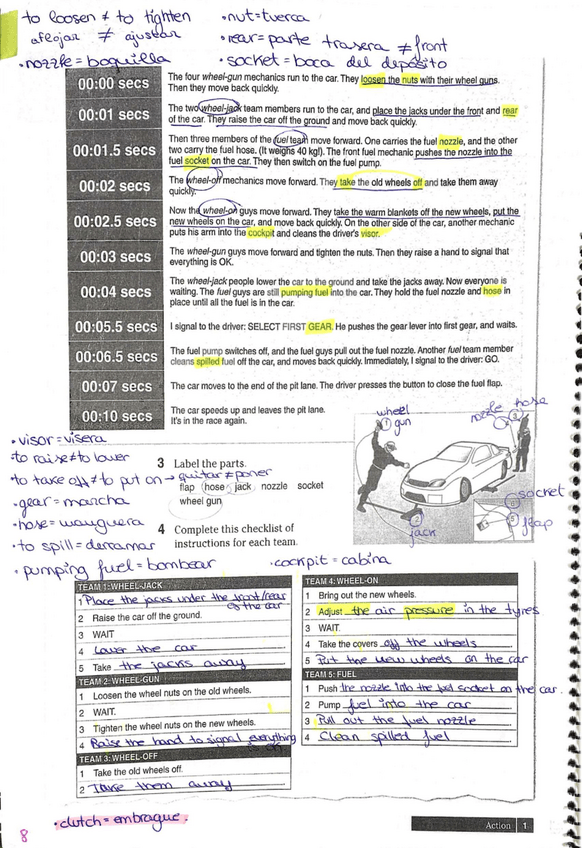 to loosen ≠ to tighten
aflojar ≠ ajustar
•nozzle = boquilla
•nut=tuerca
•rear=parte trasera ≠ front
•socket = boca del depósito
00:00 secs
The four wheel-gun mechanics run to the car. They loosen the nuts with their wheel guns.
Then they move back quickly.
00:01 secs
The two wheel-jack team members run to the car, and place the jacks under the front and rear
of the car. They raise the car off the ground and move back quickly.
00:01.5 secs
Then three members of the fuel team move forward. One carries the fuel nozzle, and the other
two carry the fuel hose. (It weighs 40 kg!). The front fuel mechanic pushes the nozzle into the
fuel socket on the car. They then switch on the fuel pump.
00:02 secs
The wheel-off mechanics move forward. They take the old wheels off and take them away
quickly.
00:02.5 secs
Now the wheel-on guys move forward. They take the warm blankets off the new wheels, put the
new wheels on the car, and move back quickly. On the other side of the car, another mechanic
puts his arm into the cockpit and cleans the driver's visor.
00:03 secs
The wheel-gun guys move forward and tighten the nuts. Then they raise a hand to signal that
everything is OK.
00:04 secs
The wheel-jack people lower the car to the ground and take the jacks away. Now everyone is
waiting. The fuel guys are still pumping fuel into the car. They hold the fuel nozzle and hose in
place until all the fuel is in the car.
00:05.5 secs
I signal to the driver: SELECT FIRST GEAR. He pushes the gear lever into first gear, and waits.
00:06.5 secs
The fuel pump switches off, and the fuel guys pull out the fuel nozzle. Another fuel team member
cleans spilled fuel off the car, and moves back quickly. Immediately, I signal to the driver: GO.
00:07 secs
The car moves to the end of the pit lane. The driver presses the button to close the fuel flap.
00:10 secs
The car speeds up and leaves the pit lane.
It's in the race again.
•visor=visera
•to raise≠to lower
•to take off ≠ to put on → quitar ≠ poner
•gear = marcha
•hose = manguera
•to spill = derramar
•pumping fuel = bombear
•cockpit = cabina
3 Label the parts.
flap hose jack nozzle socket
wheel gun
4 Complete this checklist of
instructions for each team.
wheel
1 gun
nozzle
hose
jack
socket
flap
TEAM 1: WHEEL-JACK
1 Place the jacks under the front/rear
of the car
2 Raise the car off the ground.
3 WAIT
4 Lower the car
5 Take the jacks away
TEAM 2: WHEEL-GUN
1 Loosen the wheel nuts on the old wheels.
2 WAIT.
3 Tighten the wheel nuts on the new wheels.
4 Raise the hand to signal everything
is OK
TEAM 3: WHEEL-OFF
1 Take the old wheels off.
2 Take them away
TEAM 4: WHEEL-ON
1 Bring out the new wheels.
2 Adjust the air pressure in the tyres
3 WAIT.
4 Take the covers off the wheels
5 Put the new wheels on the car
TEAM 5: FUEL
1 Push the nozzle into the fuel socket on the car.
2 Pump fuel into the car
3 Pull out the fuel nozzle
4 Clean spilled fuel
•clutch = embrague
Action 1
8